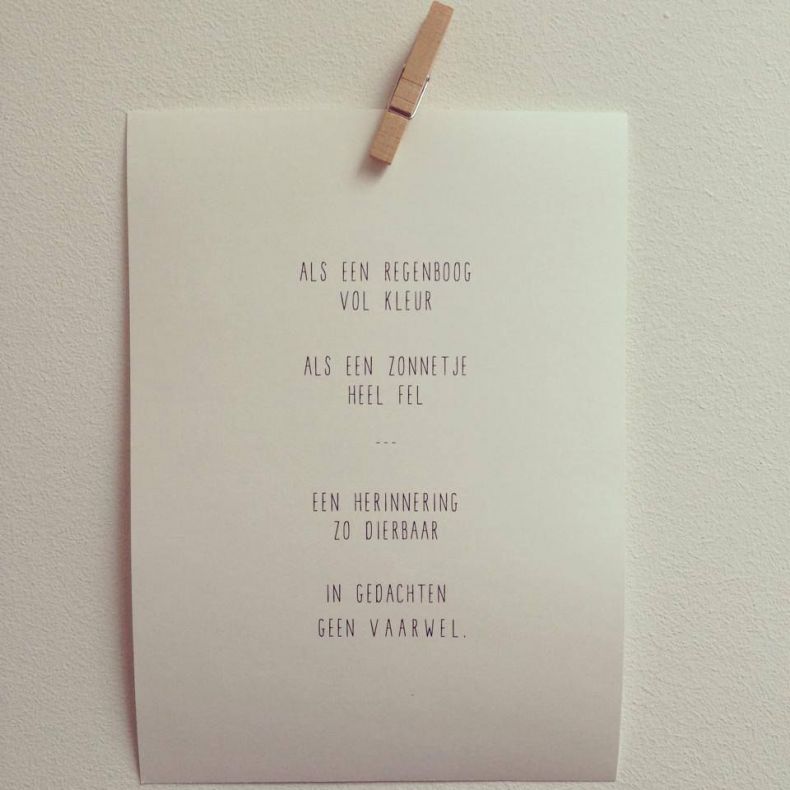 ALS EEN REGENBOOG
VOL KLEUR
ALS EEN ZONNETJE
HEEL FEL
---
EEN HERINNERING
ZO DIERBAAR
IN GEDACHTEN
GEEN VAARWEL.